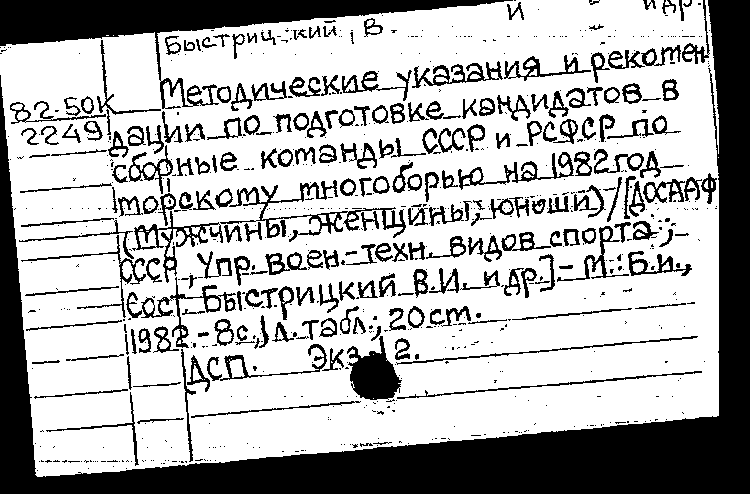 Быстриц-кий, В. И - и др.
Методические указания и рекомен
82-50К
2249 дации по подготовке кандидатов в
сборные команды СССР и РСФСР по
морскому многоборью на 1982 год
(Мужчины, женщины, юноши)/[ДОСААФ
СССР, Упр. воен.-техн. видов спорта;
Сост. Быстрицкий В.И. и др.].- М.: Б.и.,
1982.- 8с., 1 л. табл.; 20 см.
ДСП. Экз. 2.